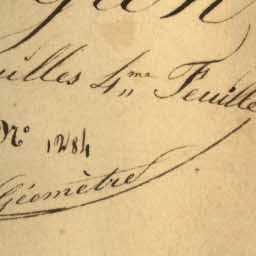 uilles 4me Feuille
No 1284
Géomètre